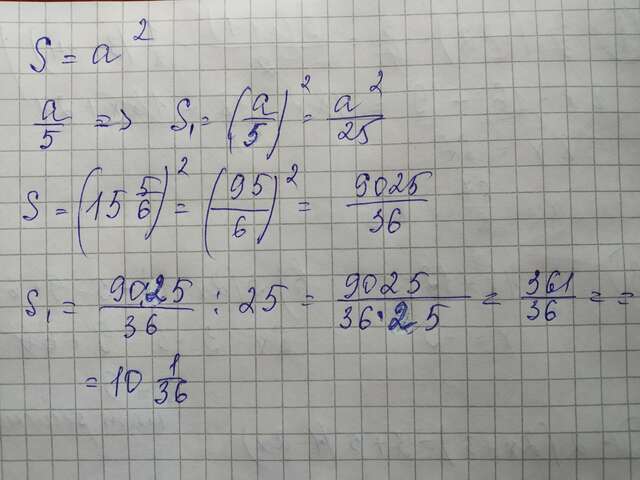 S = a²
a/5 => S₁ = (a/5)² = a²/25
S = (15 5/6)² = (95/6)² = 9025/36
S₁ = 9025/36 : 25 = 9025/36·25 = 361/36 = =
= 10 1/36